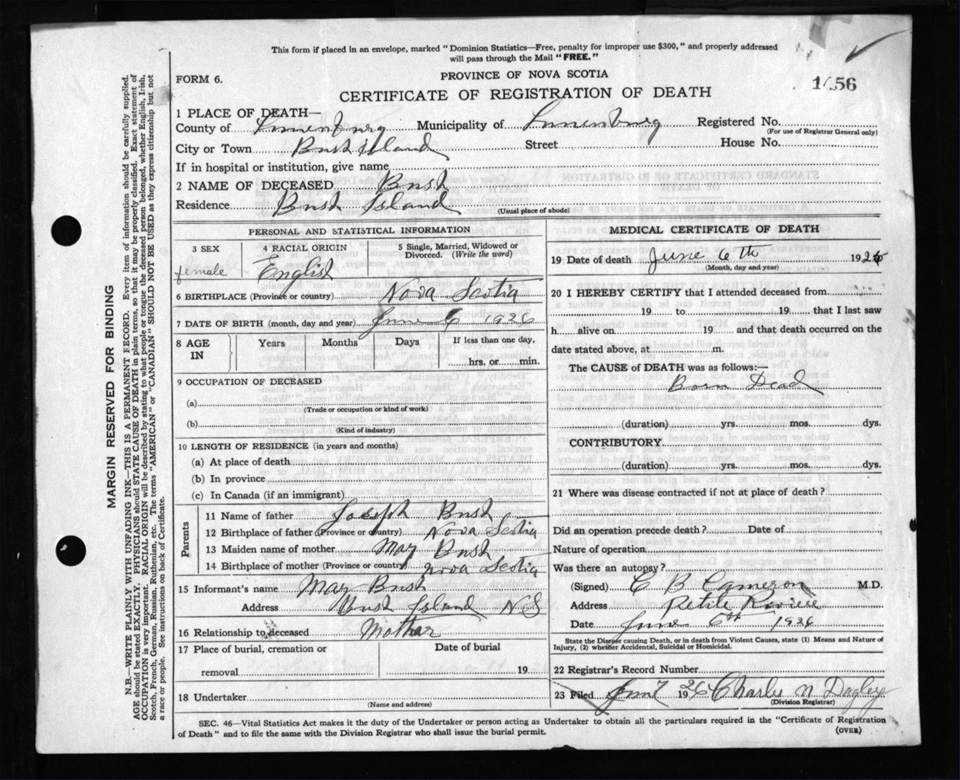 This form if placed in an envelope, marked "Dominion Statistics—Free, penalty for improper use $300," and properly addressed
will pass through the Mail "FREE."
FORM 6.
PROVINCE OF NOVA SCOTIA
CERTIFICATE OF REGISTRATION OF DEATH
MARGIN RESERVED FOR BINDING
N.B.—WRITE PLAINLY WITH UNFADING INK—THIS IS A PERMANENT RECORD. Every item of information should be carefully supplied.
AGE should be stated EXACTLY. PHYSICIANS should STATE CAUSE OF DEATH in plain terms, so that it may be properly classified. Exact statement of
OCCUPATION is very important. RACIAL ORIGIN will be described by stating to what people or tongue the deceased person belonged, whether English, Irish,
Scotch, French, German, Russian, Ruthenian, etc. The terms "AMERICAN" or "CANADIAN" SHOULD NOT BE USED as they express citizenship but not
a race or people. See instructions on back of Certificate.
1 PLACE OF DEATH—
County of Lunenburg Municipality of Lunenburg Registered No.
(For use of Registrar General only)
City or Town Bush Island Street House No.
If in hospital or institution, give name
2 NAME OF DECEASED Bush
Residence Bush Island
(Usual place of abode)
PERSONAL AND STATISTICAL INFORMATION
3 SEX 4 RACIAL ORIGIN 5 Single, Married, Widowed or
Divorced. (Write the word)
female English
6 BIRTHPLACE (Province or country) Nova Scotia
7 DATE OF BIRTH (month, day and year) June 6 1926
8 AGE IN Years Months Days If less than one day,
hrs. or min.
9 OCCUPATION OF DECEASED
(a)
(Trade or occupation or kind of work)
(b)
(Kind of industry)
10 LENGTH OF RESIDENCE (in years and months)
(a) At place of death
(b) In province
(c) In Canada (if an immigrant)
Parents
11 Name of father Joseph Bush
12 Birthplace of father (Province or country) Nova Scotia
13 Maiden name of mother May Bush
14 Birthplace of mother (Province or country) Nova Scotia
15 Informant's name May Bush
Address Bush Island N S
16 Relationship to deceased Mother
17 Place of burial, cremation or Date of burial
removal 19
18 Undertaker
(Name and address)
MEDICAL CERTIFICATE OF DEATH
19 Date of death June 6th 1926
(Month, day and year)
20 I HEREBY CERTIFY that I attended deceased from
19 to 19 that I last saw
h alive on 19 and that death occurred on the
date stated above, at m.
The CAUSE of DEATH was as follows:—
Born Dead
(duration) yrs. mos. dys.
CONTRIBUTORY
(duration) yrs. mos. dys.
21 Where was disease contracted if not at place of death?
Did an operation precede death? Date of
Nature of operation
Was there an autopsy?
(Signed) C B Cameron M.D.
Address Petite Riviere
Date June 6th 1926
State the Disease causing Death, or in death from Violent Causes, state (1) Means and Nature of
Injury, (2) whether Accidental, Suicidal or Homicidal.
22 Registrar's Record Number
23 Filed June 7 1926 Charles N Dagley
(Division Registrar)
SEC. 46—Vital Statistics Act makes it the duty of the Undertaker or person acting as Undertaker to obtain all the particulars required in the "Certificate of Registration
of Death" and to file the same with the Division Registrar who shall issue the burial permit.
(OVER)